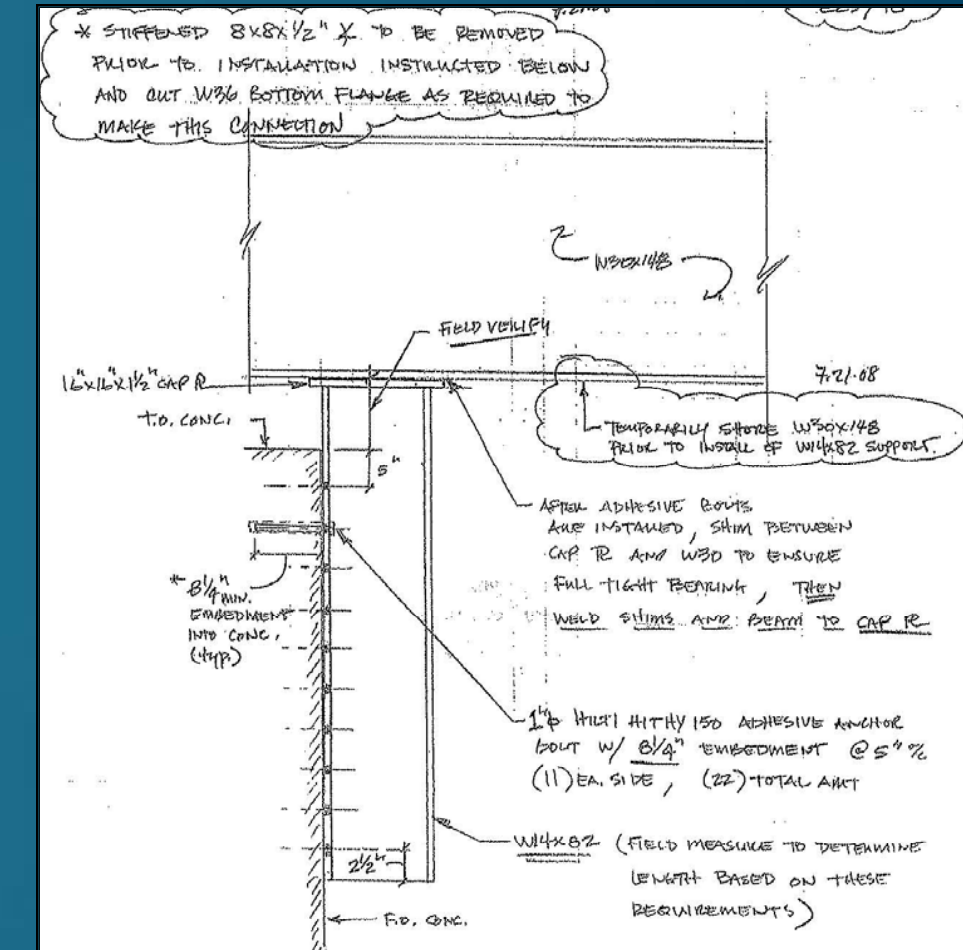 * STIFFENED 8x8x1/2" ⅊ TO BE REMOVED
PRIOR TO INSTALLATION INSTRUCTED BELOW
AND CUT W36 BOTTOM FLANGE AS REQUIRED TO
MAKE THIS CONNECTION
W30x148
FIELD VERIFY
16"x16"x1 1/2" CAP ⅊
7.21.08
T.O. CONC.
TEMPORARILY SHORE W30x148
PRIOR TO INSTALL OF W14x82 SUPPORT.
5"
AFTER ADHESIVE BOLTS
ARE INSTALLED, SHIM BETWEEN
CAP ⅊ AND W30 TO ENSURE
FULL TIGHT BEARING, THEN
WELD SHIMS AND BEAM TO CAP ⅊
* 8 1/4"
MIN.
EMBEDMENT
INTO CONC.
(TYP.)
1"ϕ HILTI HIT HY 150 ADHESIVE ANCHOR
BOLT W/ 8 1/4" EMBEDMENT @ 5" %
(11) EA. SIDE, (22) TOTAL AMT
W14x82 (FIELD MEASURE TO DETERMINE
LENGTH BASED ON THESE
REQUIREMENTS)
2 1/2"
F.O. CONC.